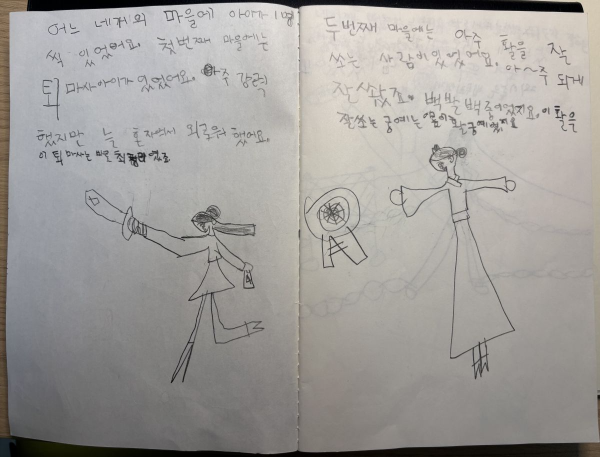 어느 네개의 마을에 아이가 1명
씩 있었어요. 첫번째 마을에는
퇴마사아이가 있었어요. 아주 강력
했지만 늘 혼자여서 외로워 했어요.
이 퇴마사는 바로
두번째 마을에는 아주 활을 잘
쏘는 사람이 있었어요. 아~주 되게
잘 쐈죠. 백발 백중이었지요. 이 활을
잘쏘는 궁예는